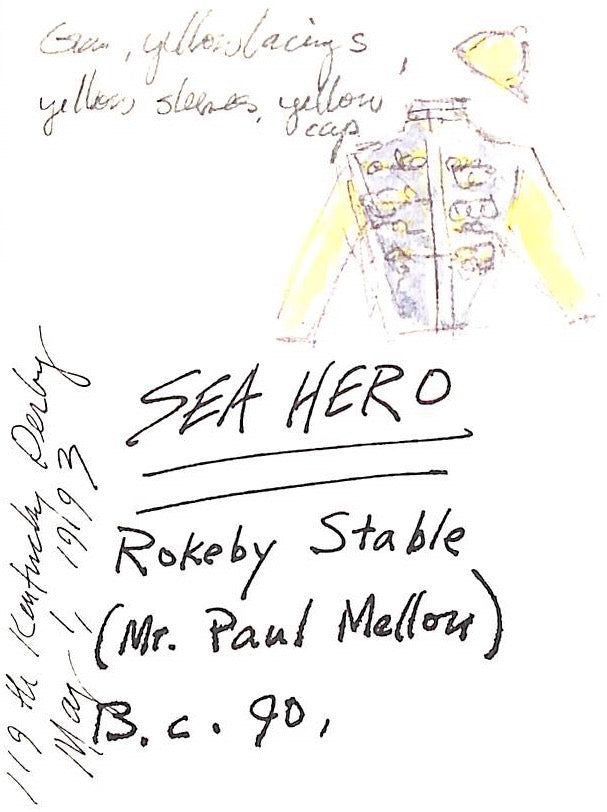 yellow lacings,
yellow sleeves, yellow
cap
SEA HERO
Rokeby Stable
(Mr. Paul Mellon)
B. c. 90,
119 th Kentucky Derby
May 1, 1993